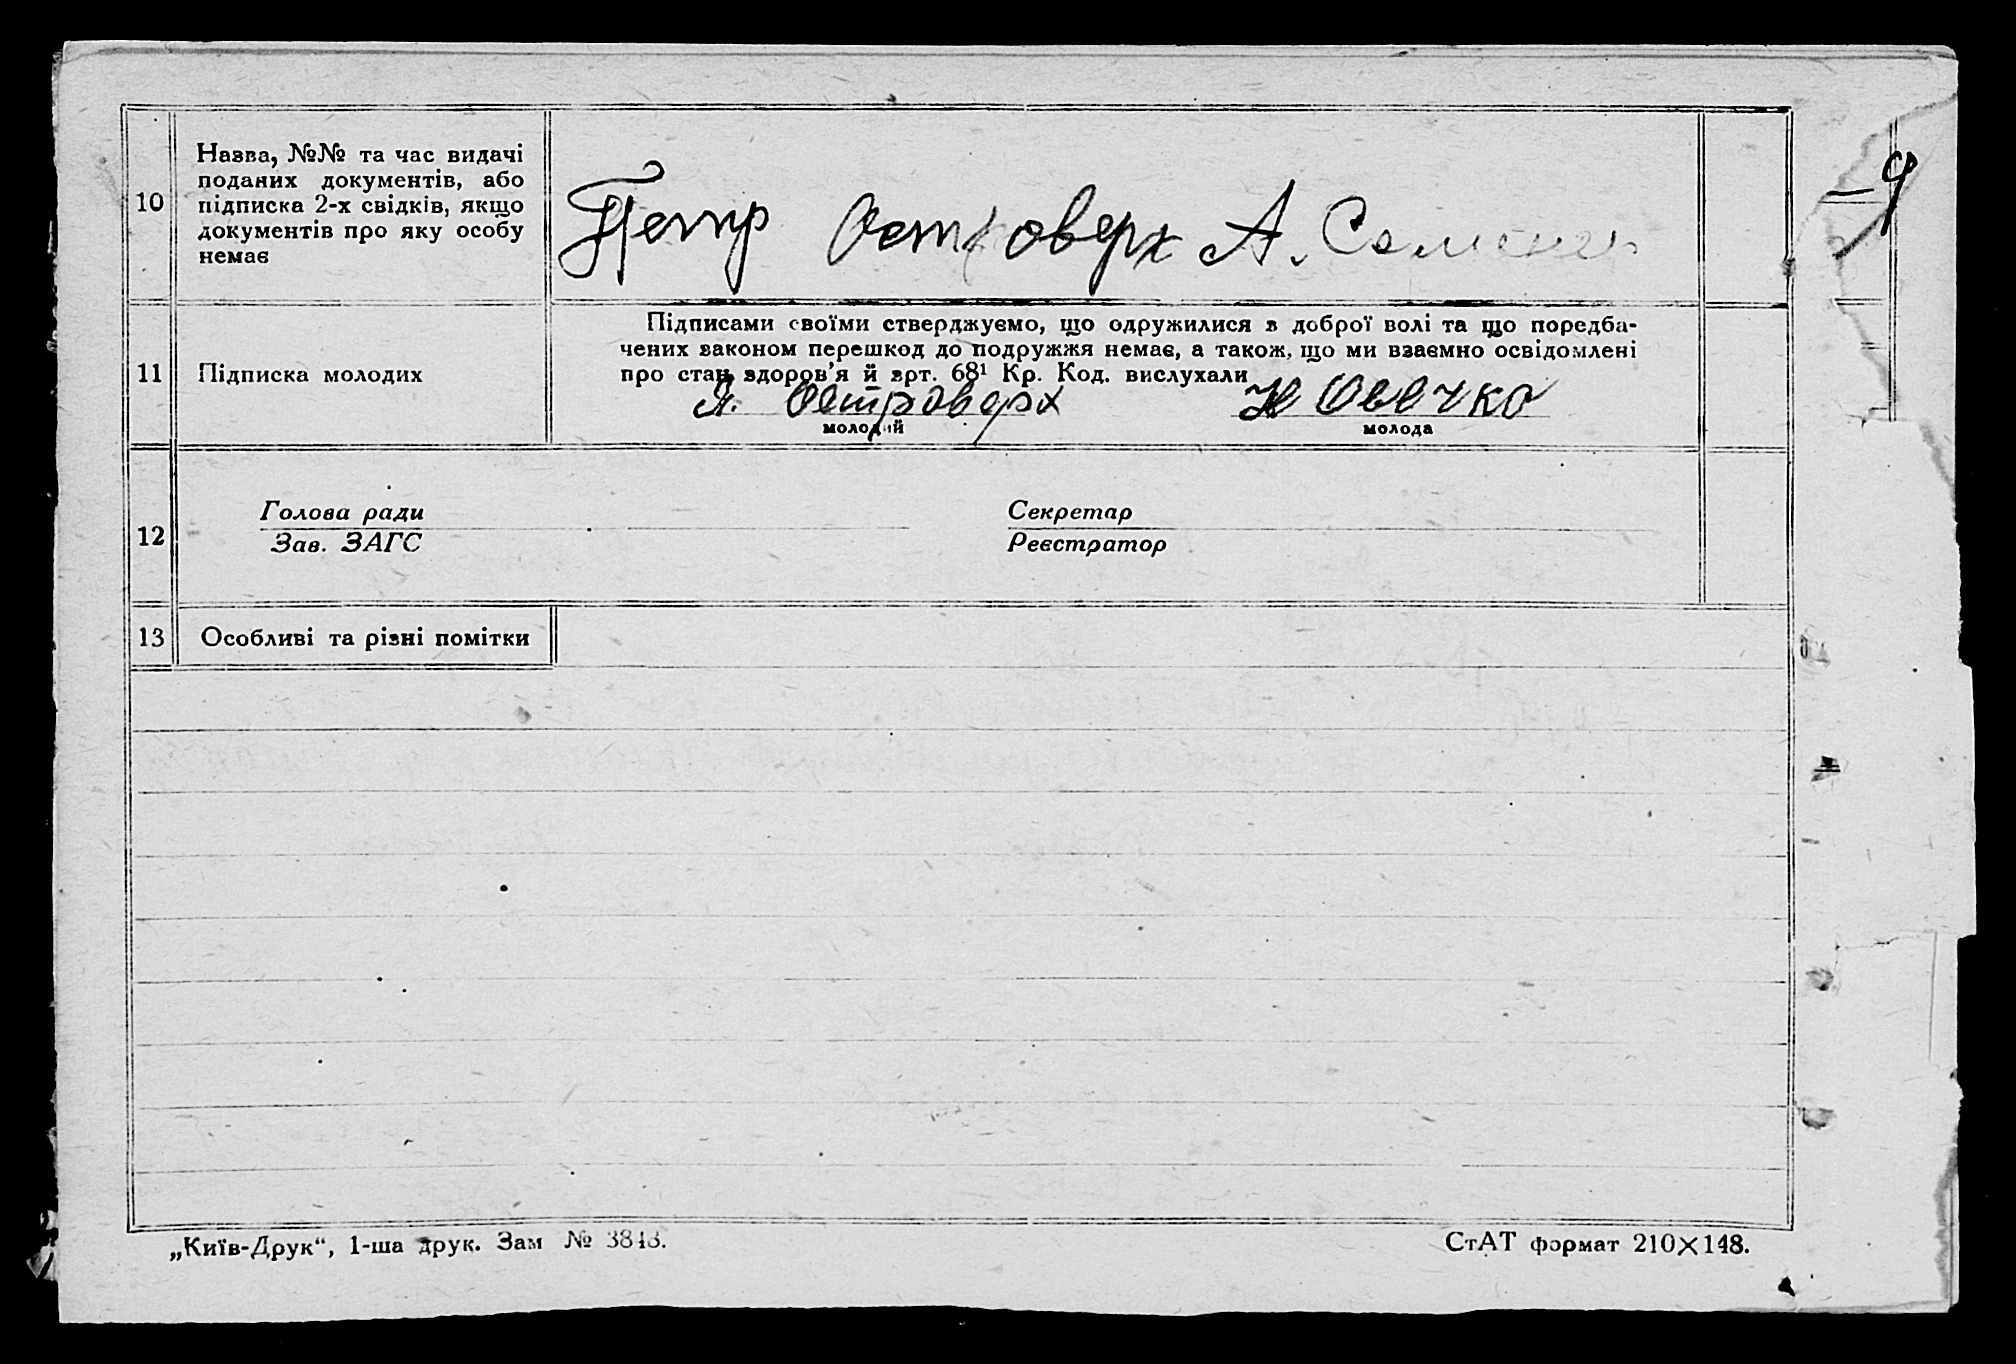 10
Назва, №№ та час видачі
поданих документів, або
підписка 2-х свідків, якщо
документів про яку особу
немає
Петр Островерх А.
9
11
Підписка молодих
Підписами своїми стверджуємо, що одружилися з доброї волі та що поредба-
чених законом перешкод до подружжя немає, а також, що ми взаємно освідомлені
про стан здоров'я й арт. 68¹ Кр. Код. вислухали
Я. Островерх Н Овечко
молодий молода
12
Голова ради Секретар
Зав. ЗАГС Реєстратор
13
Особливі та різні помітки
„Київ-Друк“, 1-ша друк. Зам № 3843. СтАТ формат 210×148.